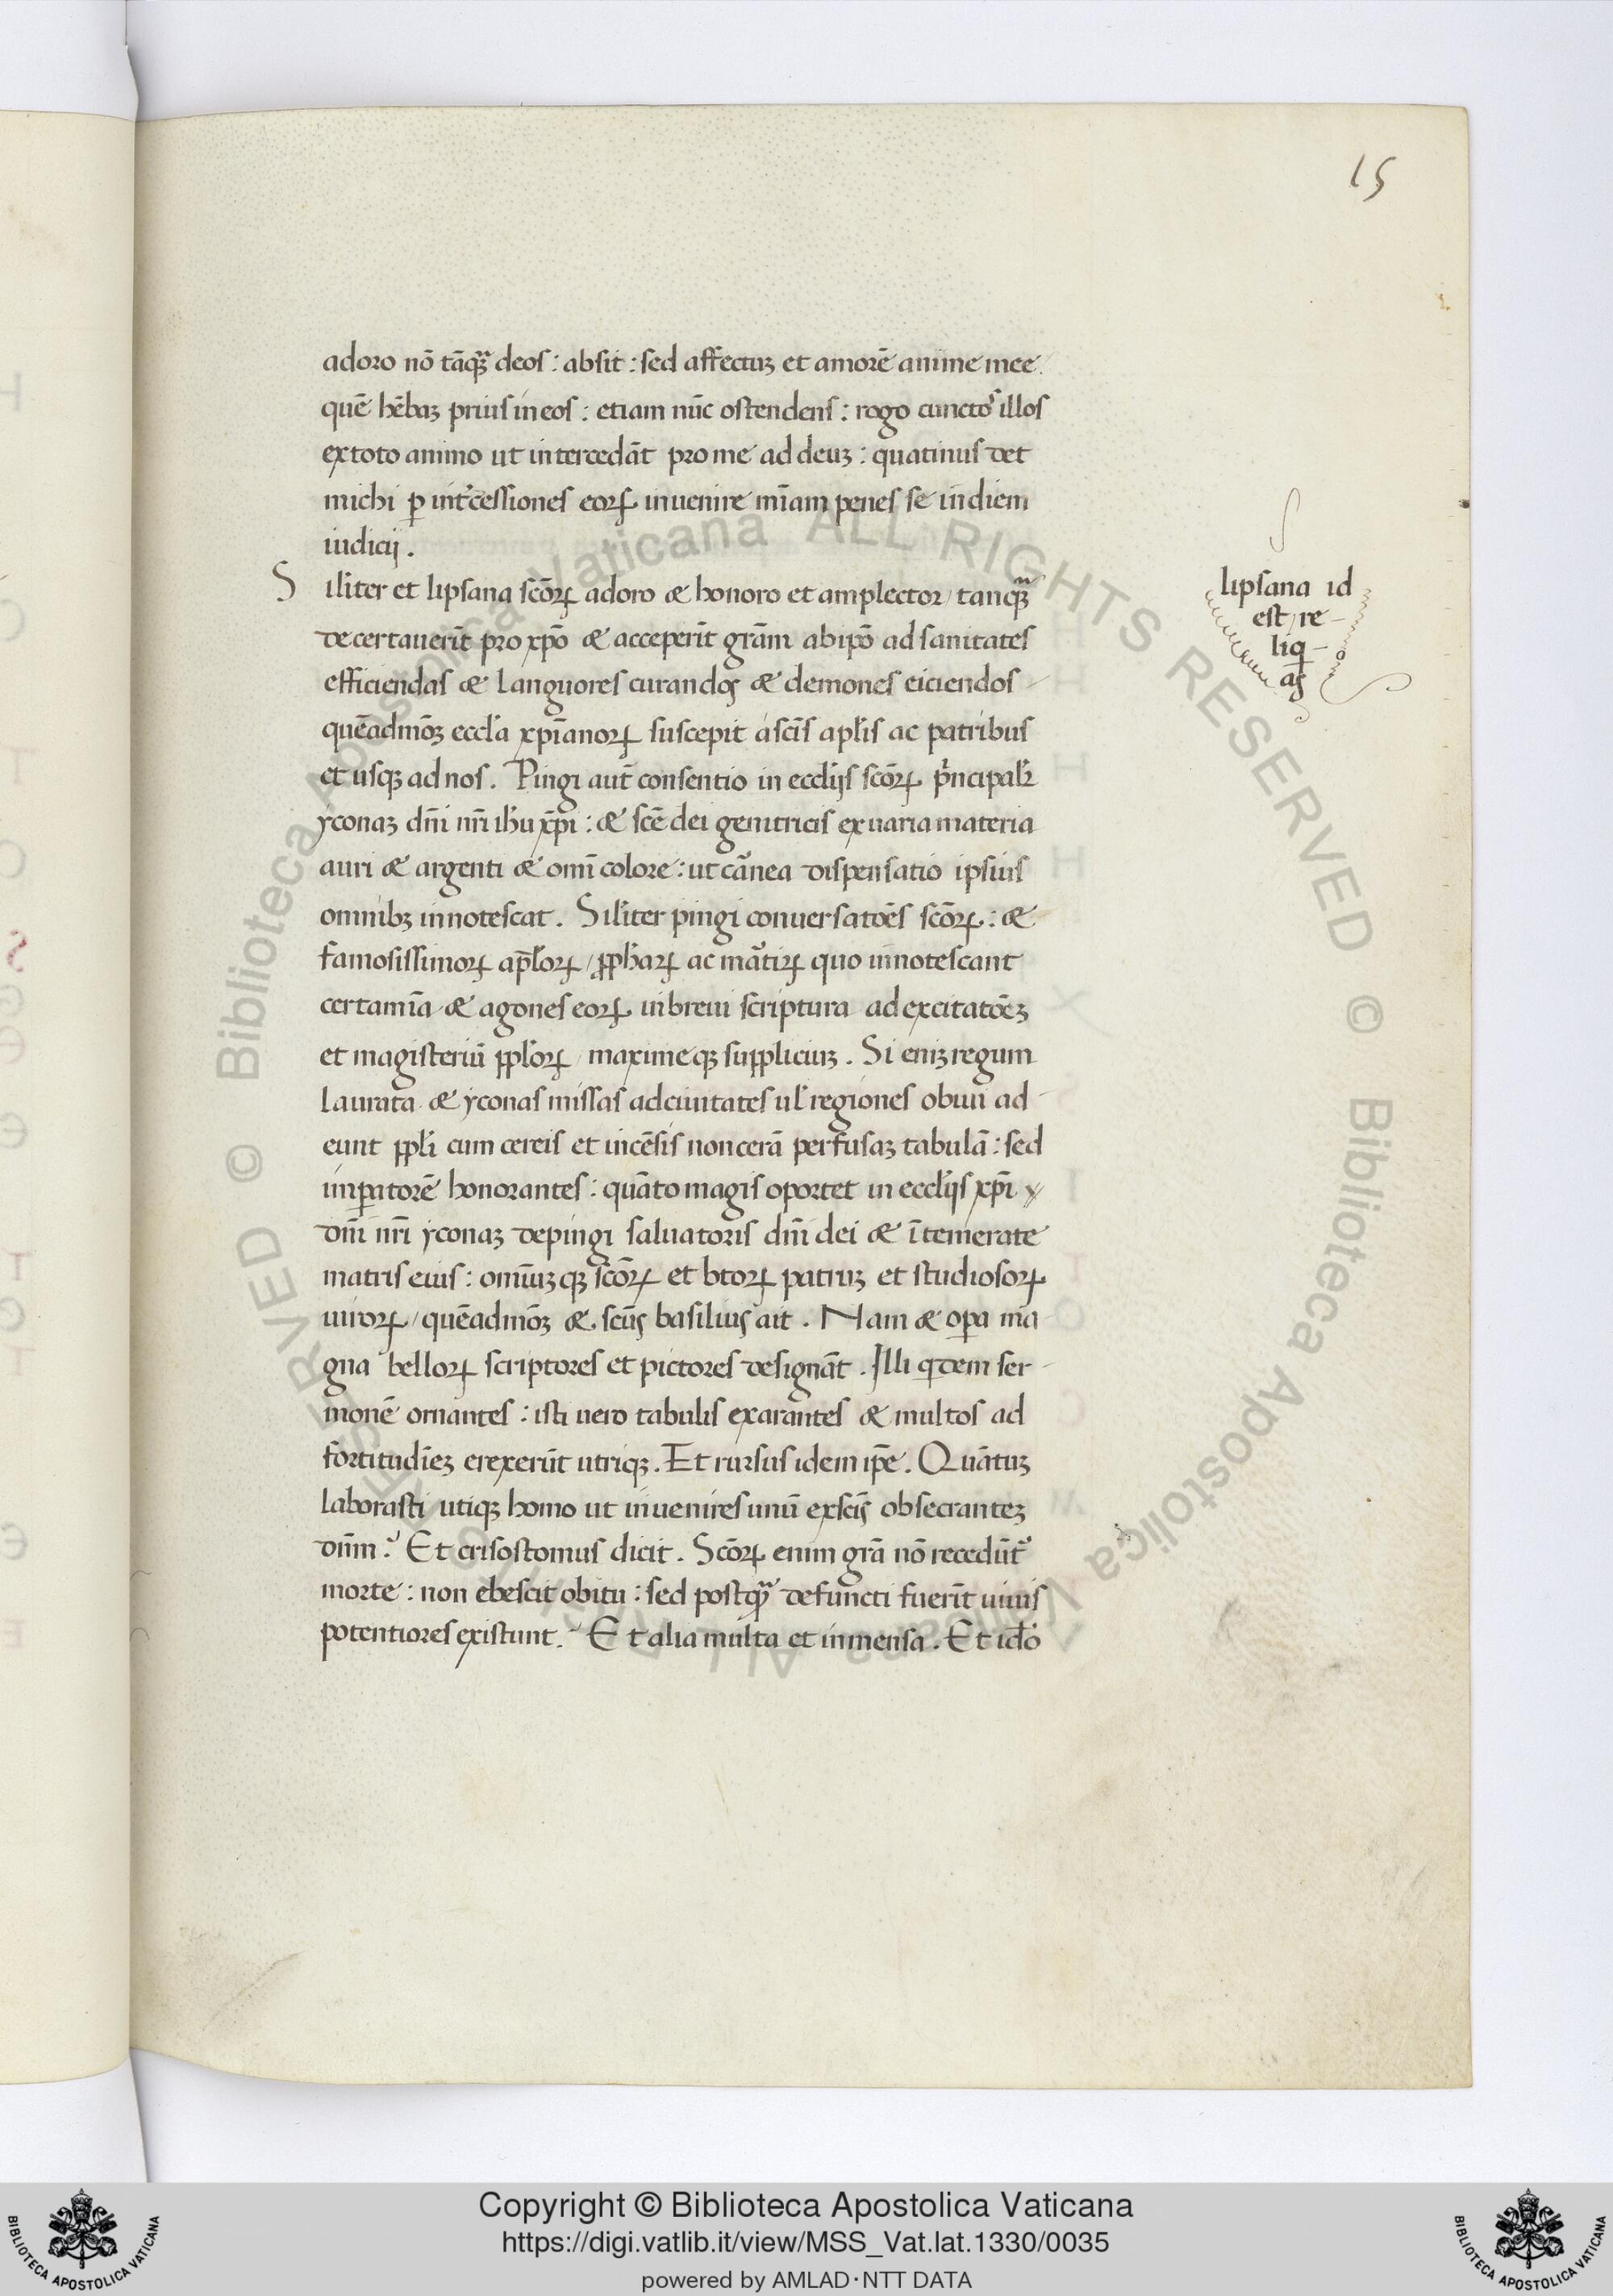 15
adoro nō tāqꝫ deos : absit : sed affectuꝫ et amorē anime mee
quē hēbaꝫ prius in eos : etiam nūc ostendens : rogo cunctos illos
ex toto animo ut intercedāt pro me ad deuꝫ : quatinus det
michi ꝑ int'cessiones eoꝝ inuenire mīam penes se in diem
iudicij .
Siliter et lipsana scōꝝ adoro & honoro et amplector / tanqꝫ
decertauerīt pro xp̄o & acceperīt grām ab ip̄o ad sanitates
efficiendas & languores curandos & demones eiciendos
quēadmōꝫ eccl'a xp̄ianoꝝ suscepit a scīs apl'is ac patribus
et usqꝫ ad nos . Pingi aut̄ consentio in eccl'ijs scōꝝ p'ncipal'r
yconaꝫ dn̄i nr̄i ihu xp̄i : & scē dei genitricis ex uaria materia
auri & argenti & omī colore : ut carnea dispensatio ipsius
omnibꝫ innotescat . Siliter pingi conuersatōes scōꝝ : &
famosissimoꝝ apl'oꝝ / ꝓphaꝝ ac martiꝝ quo innotescant
certamīa & agones eoꝝ in breui scriptura ad excitatōeꝫ
et magisteriū ppl'oꝝ / maximeqꝫ supplicuꝫ . Si eniꝫ regum
laurata & yconas missas ad ciuitates ul' regiones obuii ad
eunt ppl'i cum cereis et incēsis non cerā perfusaꝫ tabulā : sed
imꝑatorē honorantes : quāto magis oportet in eccl'ijs xp̄i
dn̄i nr̄i yconaꝫ depingi saluatoris dn̄i dei & ītemerate
matris eius : omīuꝫqꝫ scōꝝ et btoꝝ patruꝫ et studiosoꝝ
uiroꝝ / quēadmōꝫ & scūs basilius ait . Nam & oꝑa ma
gna belloꝝ scriptores et pictores designāt . Illi qdem ser-
monē ornantes : isti uero tabulis exarantes & multos ad
fortitudīeꝫ erexerūt utriqꝫ . Et rursus idem ip̄e . Quātuꝫ
laborasti utiqꝫ homo ut inuenires unū ex scīs obsecranteꝫ
dn̄m . Et crisostomus dicit . Scōꝝ enim grā nō recedūt'
morte : non ebescit obitu : sed postqꝫ defuncti fuerīt uiuis
potentiores existunt . Et alia multa et inmensa . Et id'o
lipsana id
est / re-
liq-
as
Copyright © Biblioteca Apostolica Vaticana
https://digi.vatlib.it/view/MSS_Vat.lat.1330/0035
powered by AMLAD·NTT DATA